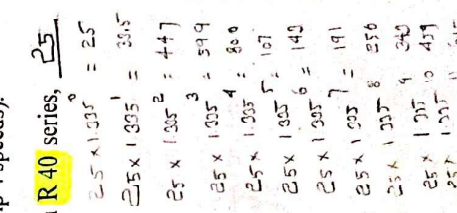 R 40 series, 25
25 x 1.335^0 = 25
25 x 1.335^1 =
25 x 1.335^2 = 447
25 x 1.335^3 = 599
25 x 1.335^4 = 800
25 x 1.335^5 = 107
25 x 1.335^6 = 143
25 x 1.335^7 = 191
25 x 1.335^8 256
25 x 1.335^9 342
25 x 1.335^10 459
25 x 1.335^11